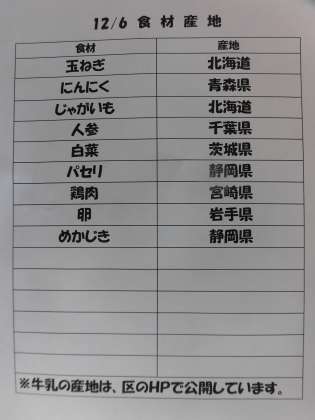 12/6 食材産地
食材 産地
玉ねぎ 北海道
にんにく 青森県
じゃがいも 北海道
人参 千葉県
白菜 茨城県
パセリ 静岡県
鶏肉 宮崎県
卵 岩手県
めかじき 静岡県
※牛乳の産地は、区のHPで公開しています。